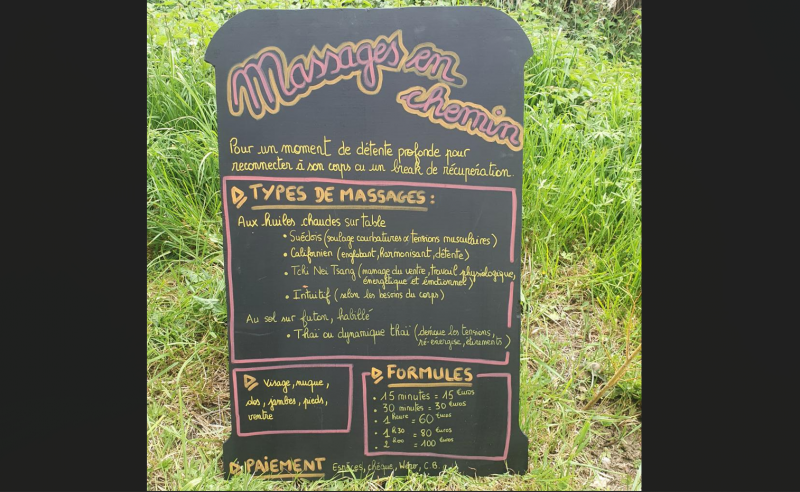 Massages en
chemin
Pour un moment de détente profonde pour
reconnecter à son corps ou un break de récupération
TYPES DE MASSAGES :
Aux huiles chaudes sur table
• Suédois (soulage courbatures & tensions musculaires)
• Californien (englobant, harmonisant, détente)
• Tchi Nei Tsang (massage du ventre, travail physiologique,
énergétique et émotionnel)
• Intuitif (selon les besoins du corps)
Au sol sur futon, habillé
• Thaï ou dynamique thaï (dénoue les tensions,
ré-énergise, étirements)
Visage, nuque,
dos, jambes, pieds,
ventre
FORMULES
• 15 minutes = 15 euros
• 30 minutes = 30 euros
• 1 heure = 60 euros
• 1 h 30 = 80 euros
• 2 h 00 = 100 euros
PAIEMENT Espèces, chèque, C.B.